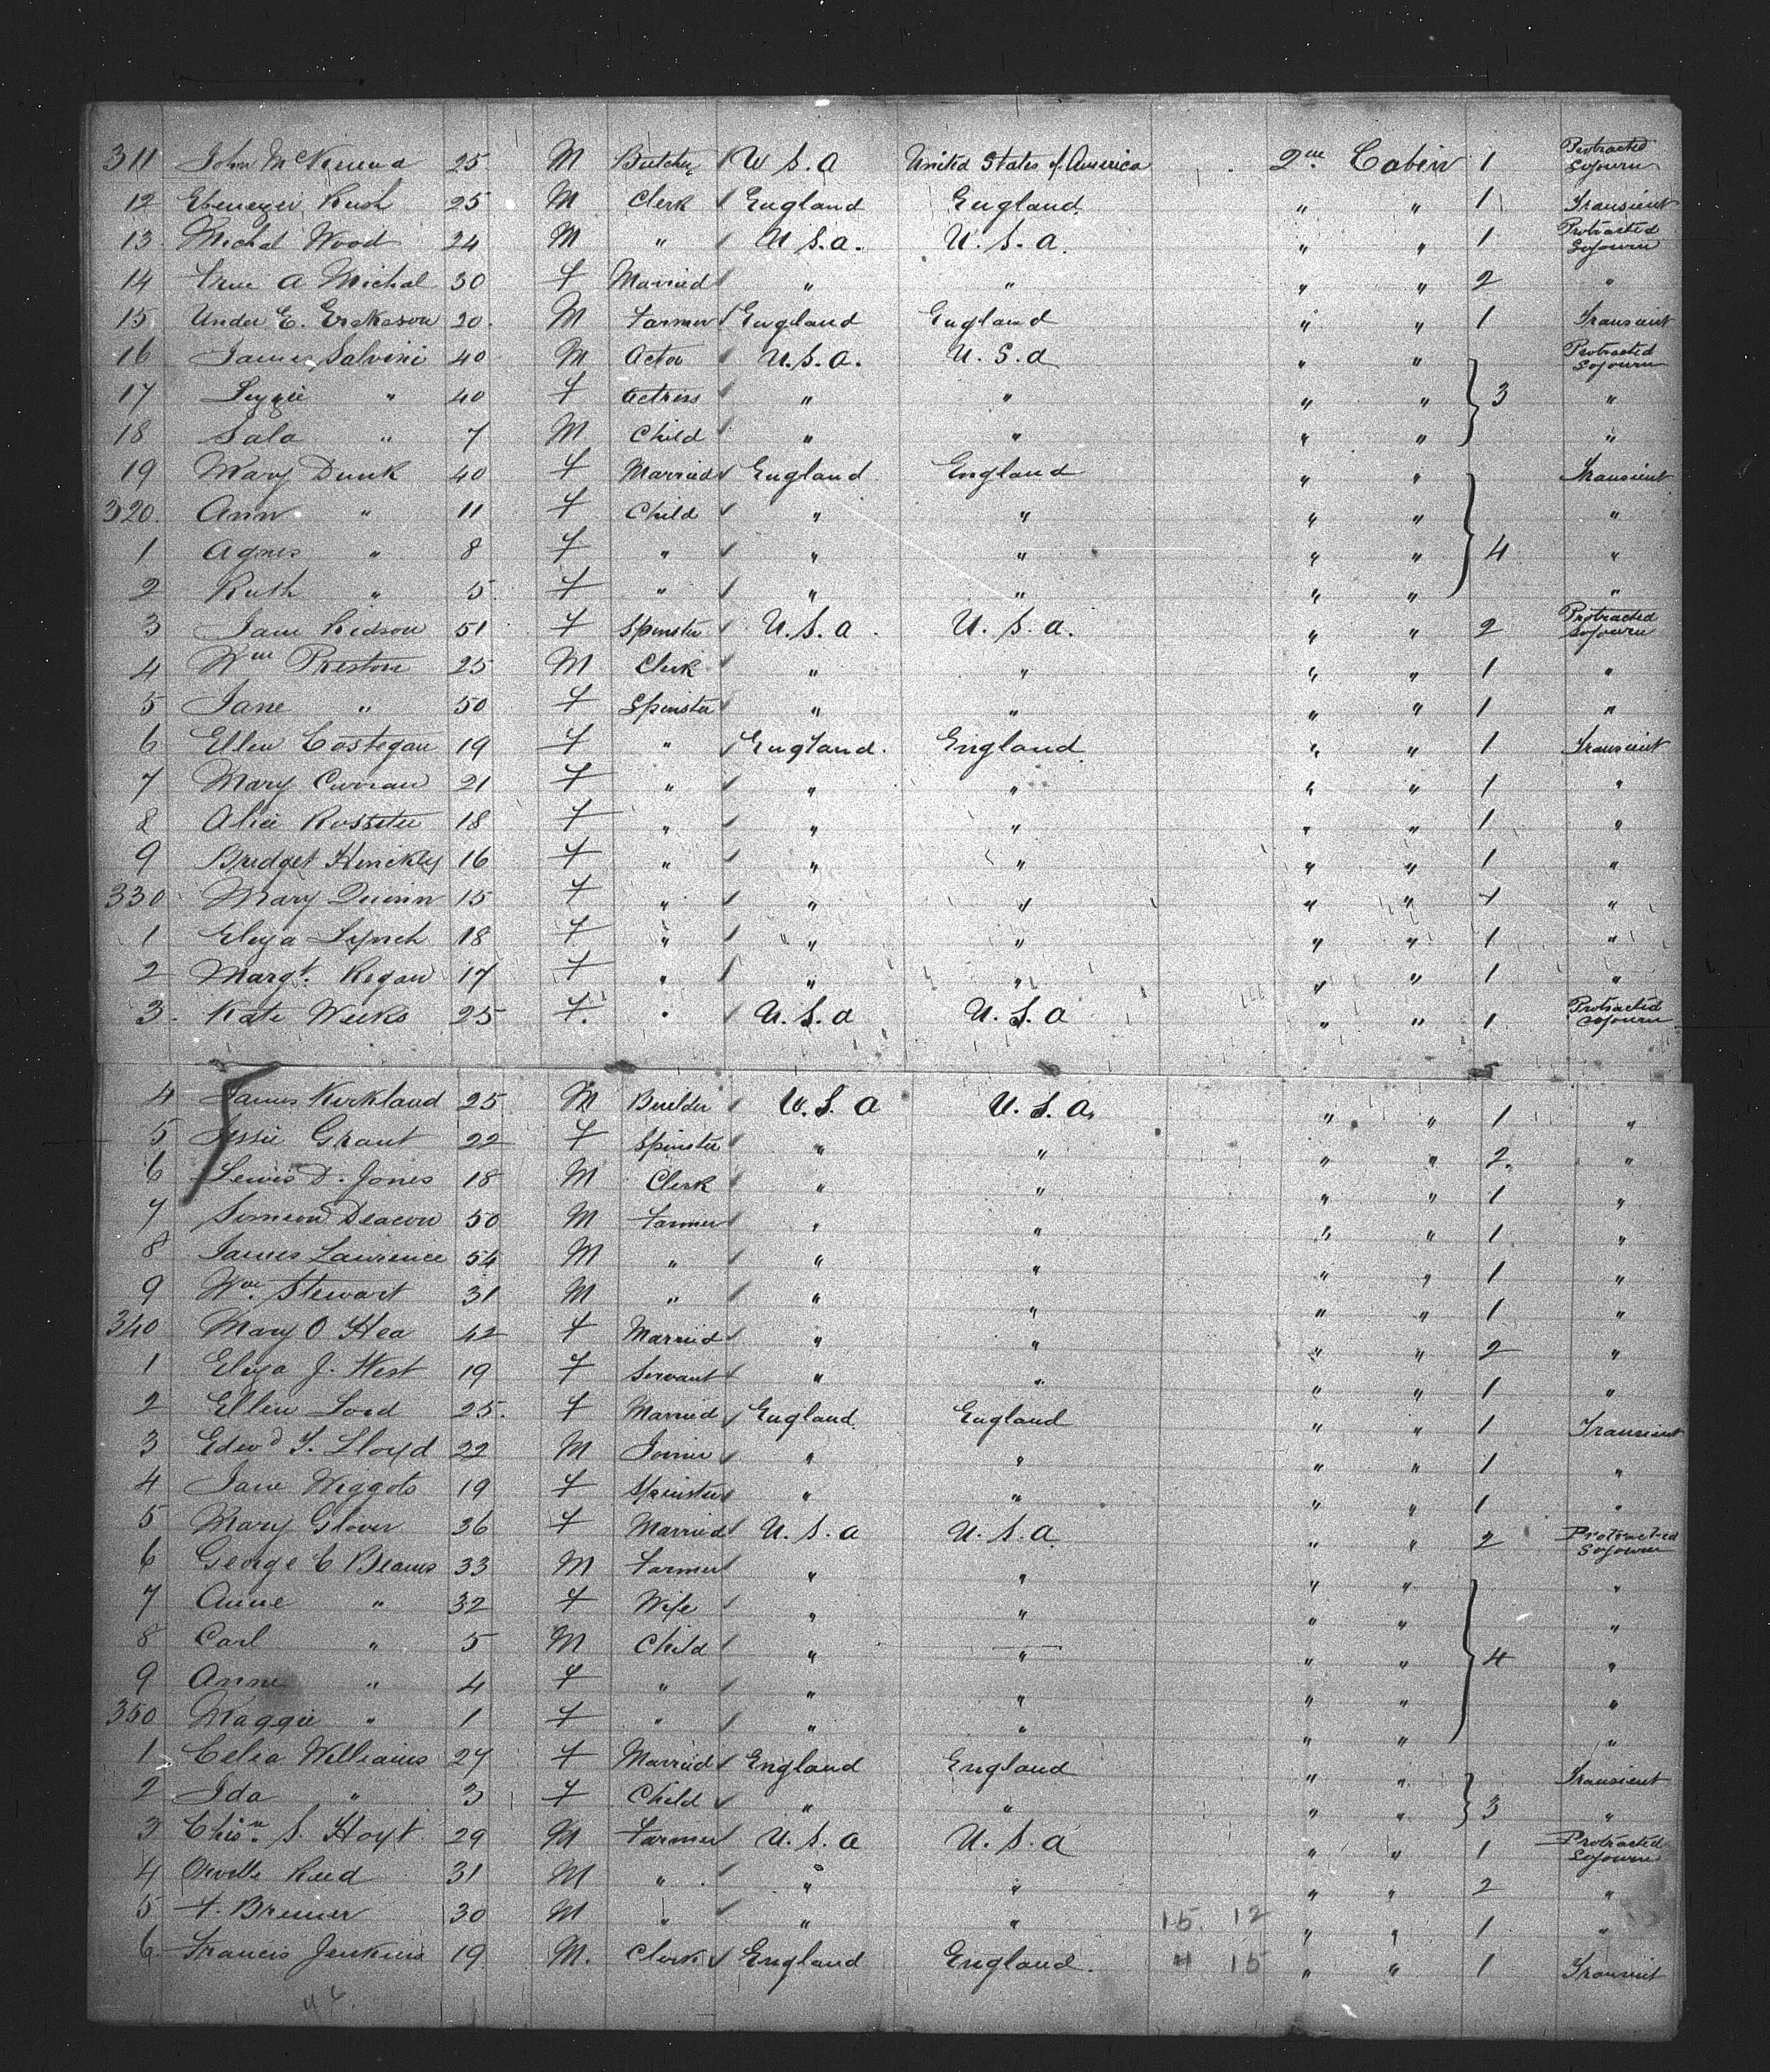 311 John McKenna 25 M Butcher U S. A United States of America 2nd Cabin 1 Protracted Sojourn
12 Ebenezer Rush 25 M Clerk England England " " 1 Transient
13 Michl Wood 24 M " U. S. A. U. S. A. " " 1 Protracted Sojourn
14 A Michal 30 F Married " " " " 2 "
15 Under E. Erickson 20 M Farmer England England " " 1 Transient
16 James Salvini 40 M Actor U. S. A. U. S. A " " Protracted Sojourn
17 Lizzie " 40 F Actress " " " " 3 "
18 Sala " 7 M Child " " " " "
19 Mary Dunk 40 F Married England England " " Transient
320. Ann " 11 F Child " " " " "
1 Agnes " 8 F " " " " " 4 "
2 Ruth " 5 F " " " " " "
3 Jane Kidson 51 F Spinster U. S. A. U. S. A. " " 2 Protracted Sojourn
4 Wm Preston 25 M Clerk " " " " 1 "
5 Jane " 50 F Spinster " " " " 1 "
6 Ellen Costegan 19 F " England. England " " 1 Transient
7 Mary Curran 21 F " " " " " 1 "
8 Alice Rossiter 18 F " " " " " 1 "
9 Bridget Hinckley 16 F " " " " " 1 "
330 Mary Quinn 15 F " " " " " 1 "
1 Eliza Lynch 18 F " " " " " 1 "
2 Margt. Regan 17 F " " " " " 1 "
3. Kate Weeks 25 F. " U. S. A U. S. A " " 1 Protracted Sojourn
4 James Kirkland 25 M Builder U. S. A U. S. A. " " 1 "
5 Jessie Grant 22 F Spinster " " " " 2. "
6 Lewis D. Jones 18 M Clerk " " " " 1 "
7 Simeon Deacon 50 M Farmer " " " " 1 "
8 James Lawrence 54 M " " " " " 1 "
9 Wm. Stewart 31 M " " " " " 1 "
340 Mary O Hea 42 F Married " " " " 2 "
1 Eliza J. West 19 F Servant " " " " 1 "
2 Ellen Lord 25. F Married England England " " 1 Transient
3 Edwd T. Lloyd 22 M Joiner " " " " 1 "
4 Jane Wiggots 19 F Spinster " " " " 1 "
5 Mary Glover 36 F Married U. S. A U. S. A. " " 2 Protracted Sojourn
6 George C Beams 33 M Farmer " " " " "
7 Anne " 32 F Wife " " " " "
8 Carl " 5 M Child " " " " 4 "
9 Anne " 4 F " " " " " "
350 Maggie " 1 F " " " " " "
1 Celia Williams 27 F Married England England " " Transient
2 Ida " 3 F Child " " " " 3 "
3 Chisn. S. Hoyt 29 M Farmer U. S. A U. S. A " " 1 Protracted Sojourn
4 Orville Reed 31 M " " " " " 2 "
5 F. Bremer 30 M " " " 15. 12 " " 1 "
6 Francis Jenkins 19 M. Clerk England England. 4 15 " " 1 Transient